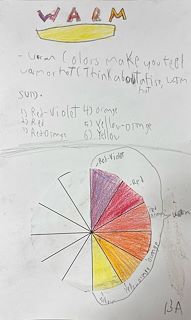 WARM
- warm Colors make you feel
warm or hot (Think about a fire, warm
hot
sun.
1) Red-Violet 4) orange
2) Red 5) Yellow-orange
3) Red Orange 6) Yellow
Red-Violet
Red
Red orange
warm
orange
Yellow orange
Yellow
13A